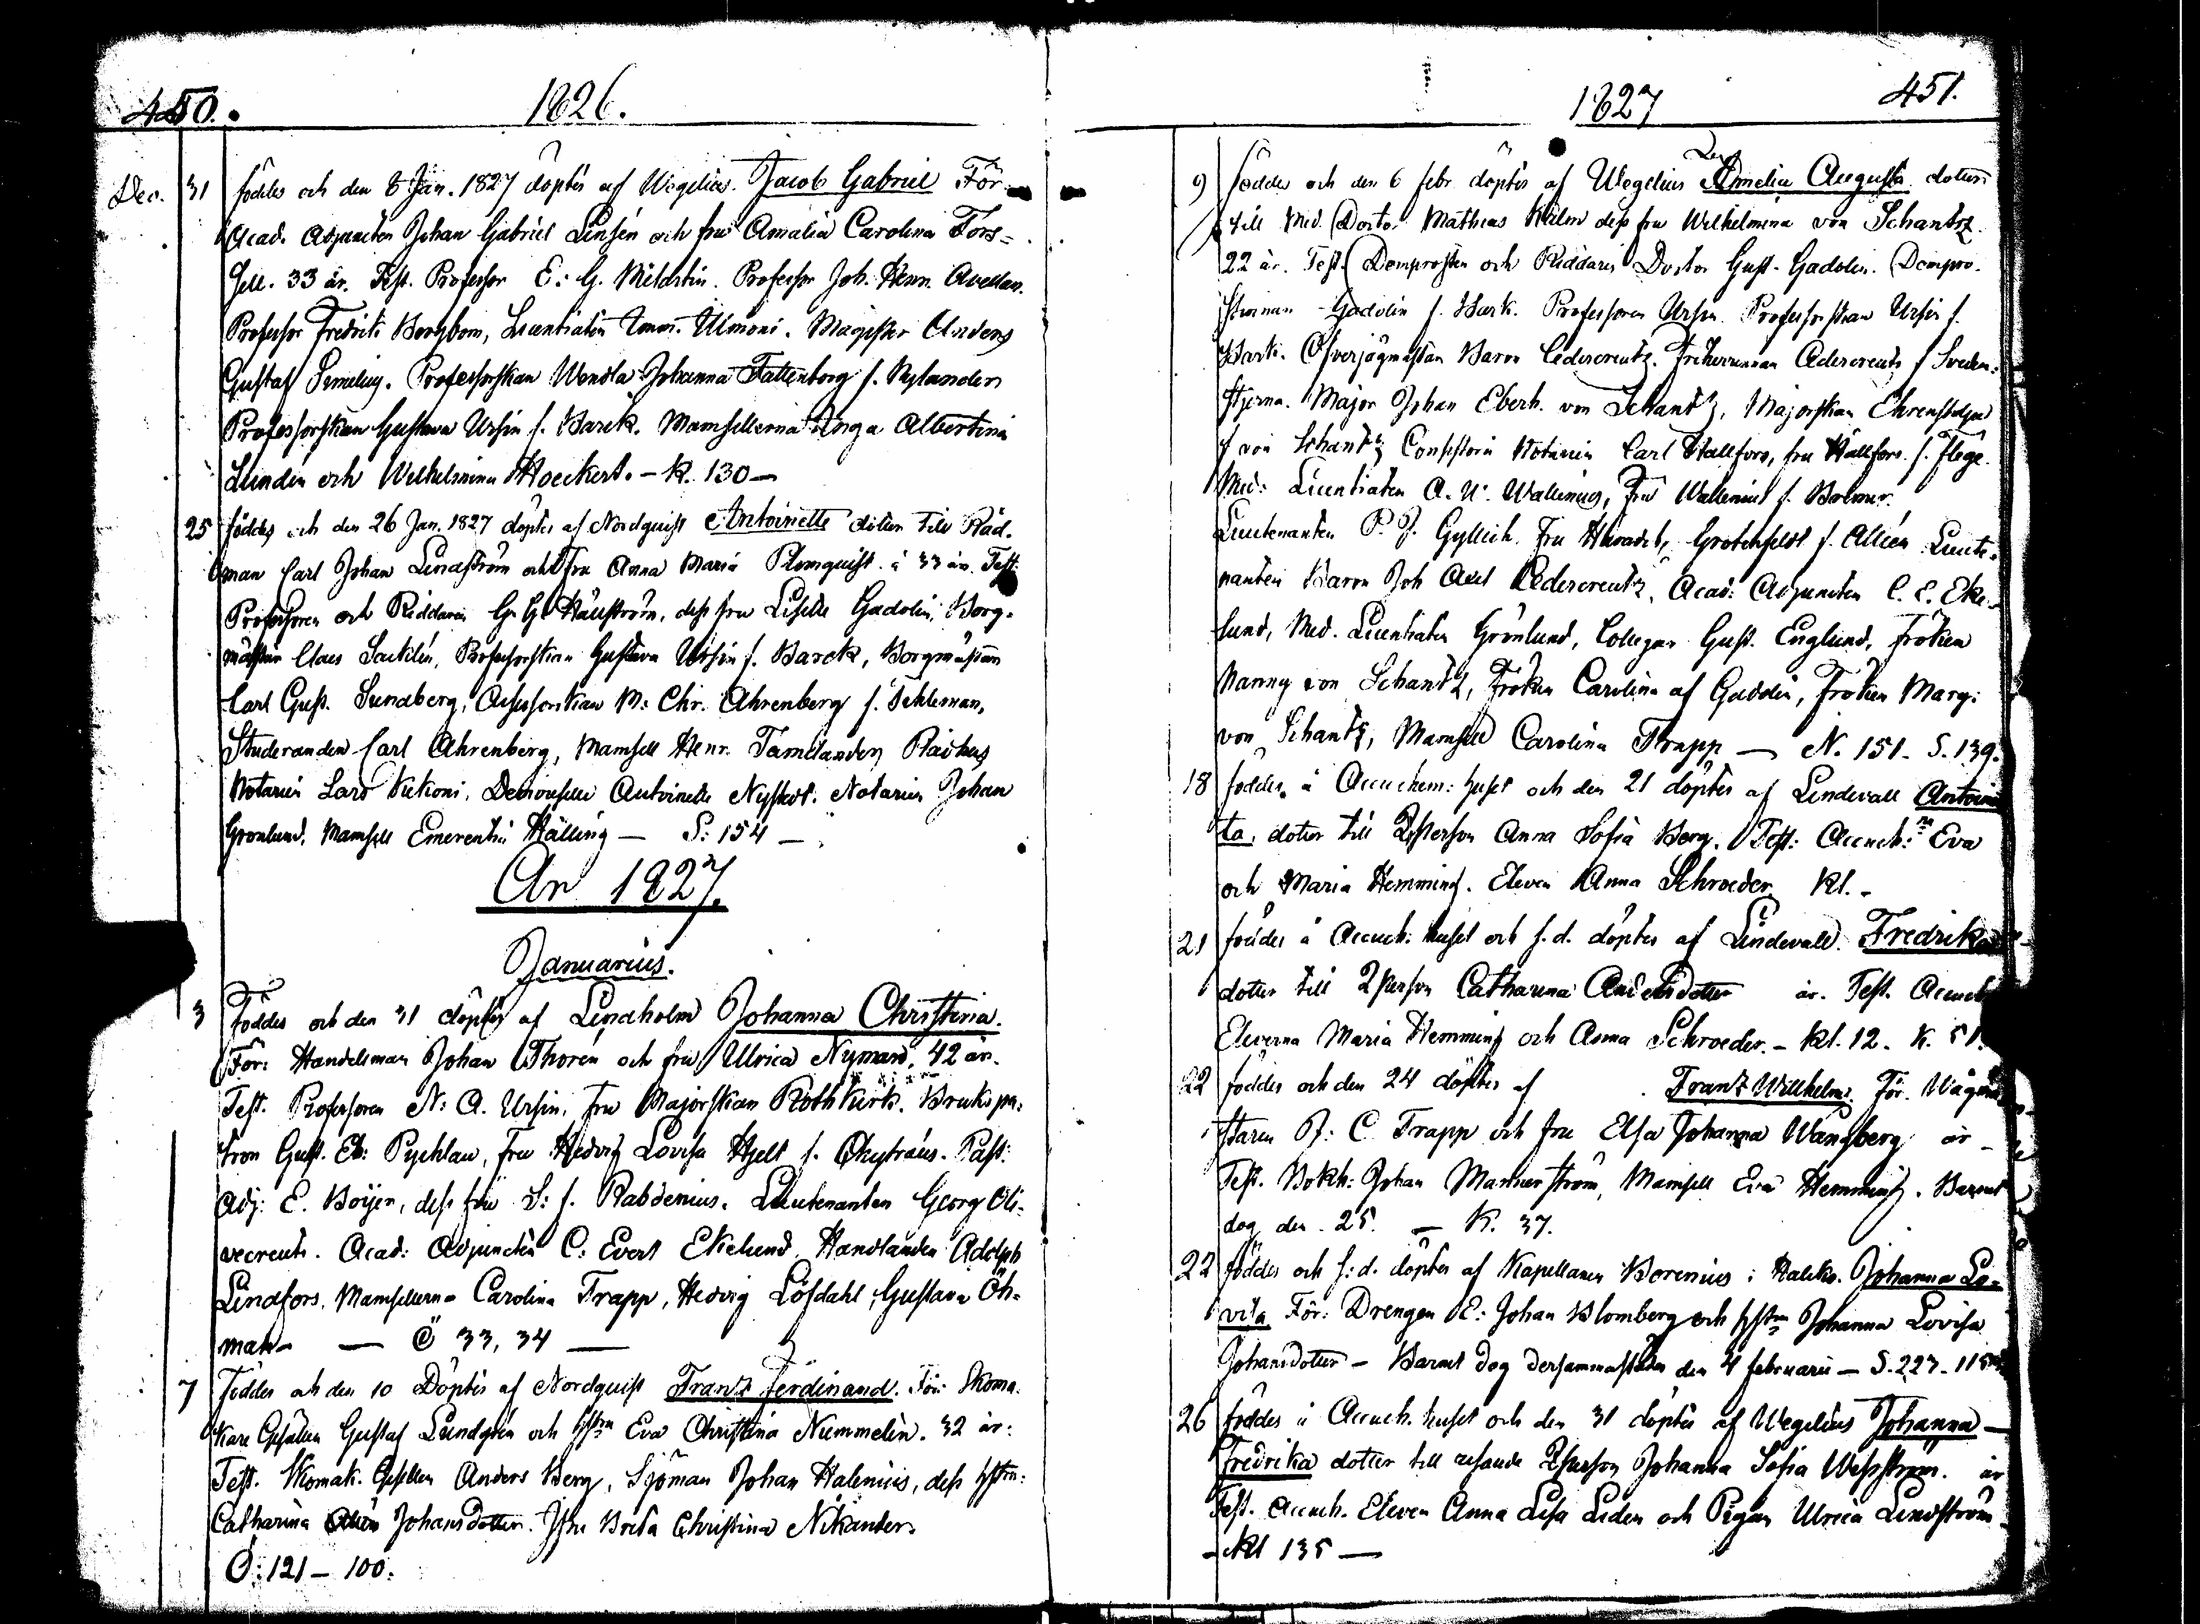 450.
1826.
Dec. 31 föddes och den 8 Jan. 1827 döptes af Wegelius. Jacob Gabriel För:
Acad. Adjuncten Johan Gabriel Linsén och fru Amalia Carolina Fors=
sell. 33 år. Test. Professor E: G. Professor Joh. Henr. Avellan.
Professor Fredrik Bergbom, Licentiaten Imm. Ilmoni. Magister Anders
Gustaf Professorskan Wendla Johanna Fattenborg f. Nylander
Professorskan Gustava Ursin f. Barck. Mamsellerna Inga Albertina
Lunden och Wilhelmina Hoeckert. – K. 130 –
25 föddes och den 26 Jan. 1827 döptes af Nordquist Antoinette dotter till Råd.
man Carl Johan Lindström och fru Anna Maria Plomquist å 33 år. Test:
Professoren och Riddaren G. G. Hällström, dess fru Lisette Gadolin, Borg=
mästar Claes Professorskan Gustava Ursin f. Barck, Borgmästaren
Carl Gust. Sundberg, Assessorskan M: Chr. Ahrenberg f.
Studeranden Carl Ahrenberg, Mamsell Henr. Tamelander, Rådhus
Notarien Lars Demoiselle Antoinette Notarien Johan
Gronlund, Mamsell Emerentia Hälling — S: 154 —
År 1827.
Januarius.
3 Föddes och den 31 döptes af Lindholm Johanna Christina.
För: Handelsman Johan Thorén och fru Ulrica Nyman. 42 år.
Test. Professoren N: A. Ursin, fru Majorskan Rothkirk. Brukspa=
tron Gust. Eb: Pychlau, fru Hedvig Lovisa Hjelt f. Chytraeus. Past:
Adj: E. Boijer, dess fru S: f. Rabdenius. Lieutenanten Georg Oli=
vecreutz. Acad: Adjuncten C: Evert Ekelund, Handlanden Adolph
Lindfors, Mamsellerna Carolina Trapp, Hedvig Löfdahl, Gustava Öh=
man — Ö 33, 34 —
7 Föddes och den 10 Döptes af Nordquist Frantz Ferdinand. För: Skoma=
kare Gesällen Gustaf Lundgren och hstru Eva Christina Nummelin. 32 år:
Test. Skomak. Gesellen Anders Berg, Sjöman Johan Halenius, dess hstru:
Catharina Johansdotter. Jfru Brita Christina Nikander.
Ö: 121 – 100.
1827
451.
9 föddes och den 6 febr. döptes af Wegelius Amelie Augusta dotter
till Med. Doctor Mathias Kalm dess fru Wilhelmina von Schantz.
22 år. Test. Domprosten och Riddaren Doctor Gust. Gadolin. Dompro=
stinnan Gadolin f. Bark. Professoren Ursin. Professorskan Ursin f.
Bark. Öfverjägmästar Baron Cedercreutz. Friherrinnan Cedercreutz f Sveden=
stjerna. Major Johan Eberh. von Schantz, Majorskan Ehrenstolpe
f von Schantz Consistorii Notarien Carl Hallfors, fru Hallfors. f. Flege.
Med: Licentiaten A. W. Wallenius, Fru Wallenius f. Bolmer.
Lieutenanten P. J. Gyllich. Fru Grotenfeldt f. Allén Lieute=
nanten Baron Joh Axel Cedercreutz, Acad: Adjuncten C. E. Eke=
lund, Med. Licentiaten Grönlund, Collegan Gust. Englund, fröken
Nanny von Schantz, Fröken Carolina af Gadolin, fröken Marg:
von Schantz, Mamsell Carolina Trapp — N. 151 – S. 139.
18 föddes å Accuchem: huset och den 21 döptes af Lindevall Antoinet
ta dotter till Qsperson Anna Sofia Berg. Test: Accuch: Eva
och Maria Hemming. Eleven Anna Schroeder Kl. –
21 föddes å Accuch: huset och s.d. döptes af Lindevall. Fredrika
dotter till Qsperson Catharina Andersdotter år. Test. Accuch
Eleverna Maria Hemming och Anna Schroeder. – Kl. 12. K. 51.
22 föddes och den 24 döptes af Frantz Willhelm. För. Vågmä
staren J: C Trapp och fru Elsa Johanna Wangberg år –
Test. Bokh: Johan Mannerström, Mamsell Eva Hemming. Barnet
dog den 25. — K. 37.
22 föddes och s:d. döptes af Kapellanen Borenius i Haliko. Johanna Lo=
visa För: Drengen E: Johan Blomberg och hstru Johanna Lovisa
Johansdotter – Barnet dog dersammastädes den 4 februarii – S. 227.
26 föddes å Accuch. huset och den 31 döptes af Wegelius Johanna –
Fredrika dotter till resande Qsperson Johanna Sofia Wessström. år
Test. Accuch. Eleven Anna Lisa Liden och Pigan Ulrica Lindström
– Kl 135 —